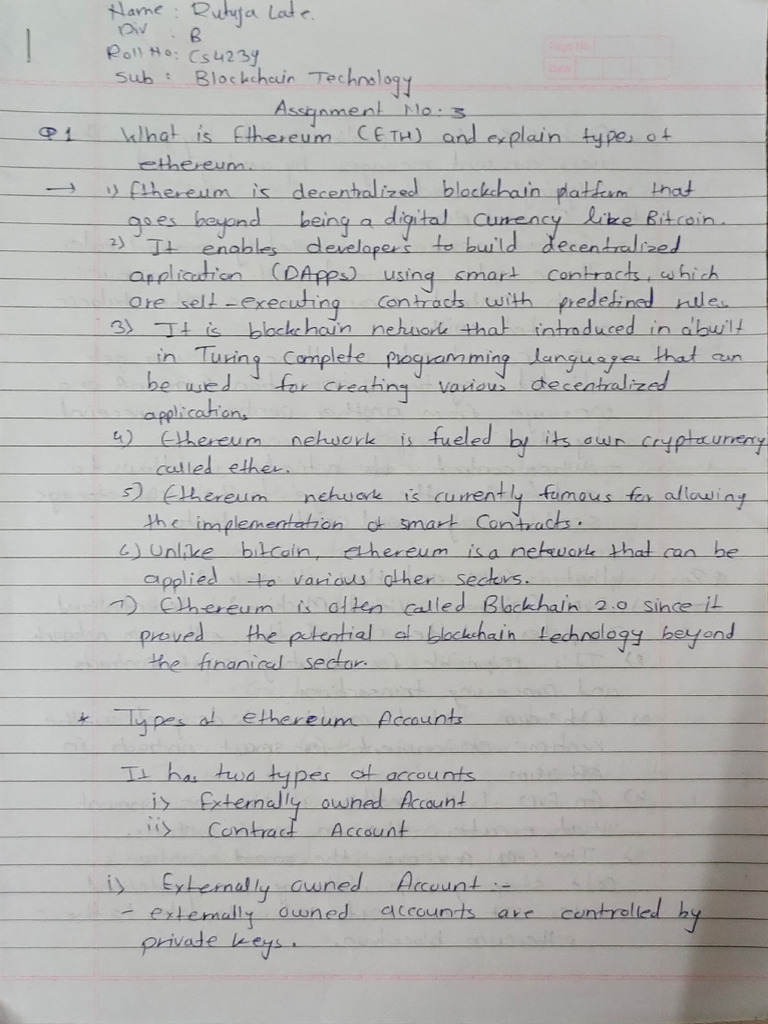 Name : Rutuja Late.
Div : B
Roll No: CS4239
Sub : Blockchain Technology
Assignment No: 3
Q1 What is Ethereum (ETH) and explain types of
ethereum.
→ 1) Ethereum is decentralized blockchain platform that
goes beyond being a digital currency like Bitcoin.
2) It enables developers to build decentralized
application (DApps) using smart contracts, which
are self-executing contracts with predefined rules
3) It is blockchain network that introduced in a built
in Turing complete programming languages that can
be used for creating various decentralized
applications
4) Ethereum network is fueled by its own cryptocurrency
called ether.
5) Ethereum network is currently famous for allowing
the implementation of smart Contracts.
6) Unlike bitcoin, ethereum is a network that can be
applied to various other sectors.
7) Ethereum is often called Blockchain 2.0 since it
proved the potential of blockchain technology beyond
the finanical sector.
* Types of ethereum Accounts
It has two types of accounts
i) Externally owned Account
ii) Contract Account
i) Externally owned Account :-
- externally owned accounts are controlled by
private keys.